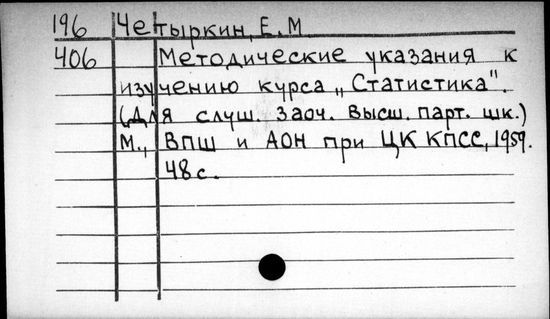 196 Четыркин, Е.М
406 Методические указания к
изучению курса „Статистика".
(Для слуш. заоч. высш. парт. шк.)
М., ВПШ и АОН при ЦК КПСС, 1959.
48 с.